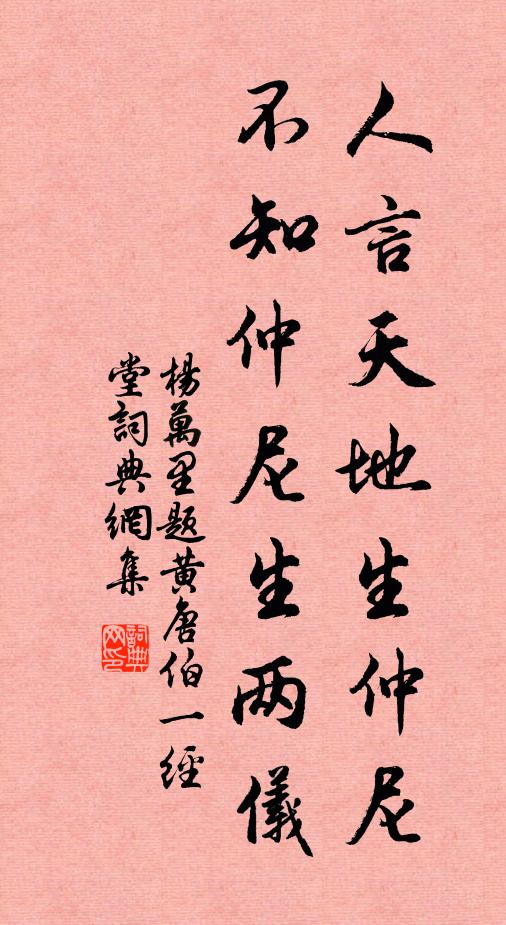 人言天地生仲尼
不知仲尼生两儀
楊萬里题黄唐伯一經
堂詞典網集
詞典
网印